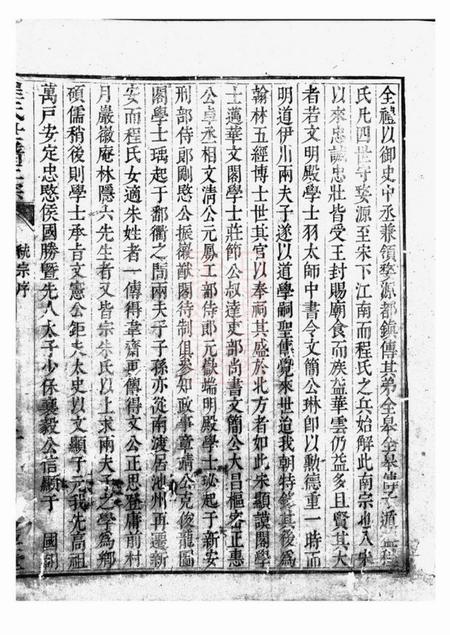 全禮以御史中丞兼領婺源都鎮傳其弟全皋全皋傳子遁
氏凡四世守婺源至宋下江南而程氏之兵始解此南宗也入宋
以來忠誠忠壯皆受王封賜廟食而族益華雲仍益多且賢其大
者若文明殿學士羽太師中書令文簡公琳卽以勳德重一時而
明道伊川兩夫子遂以道學嗣聖傳覺來世逌我朝特錄其後為
翰林五經博士世其官以奉祠其盛於北方者如此宋顯謨閣學
士邁華文閣學士莊師公叔達吏部尚書文簡公大昌樞密正惠
公卓丞相文清公元鳳工部侍郎元嶽端明殿學士珌起于新安
刑部侍郎剛愍公振徽猷閣待制俱參知政事章靖公克俊龍圖
閣學士瑀起于鄱衢之間兩夫子子孫亦從南渡居池州再遷新
安而程氏女適朱姓者一傳得韋齋再傳得文公正思登庸前村
月巖徽庵林隱六先生者又皆宗朱氏以上求兩夫子之學為鄉
碩儒稍後則學士承旨文憲公鉅夫太史以文顯于元我先高祖
萬戶安定忠愍侯國勝曁先人太子少保襄毅公信顯于 國朝
統宗序